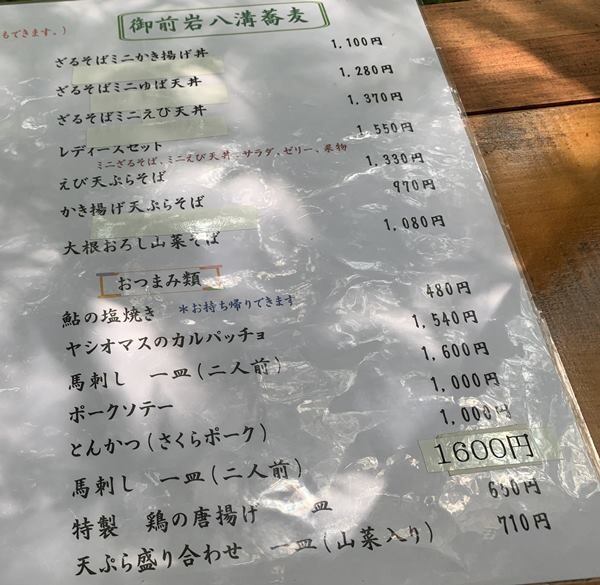 もできます。)
御前岩八溝蕎麦
ざるそばミニかき揚げ丼 1,100円
ざるそばミニゆば天丼 1,280円
ざるそばミニえび天丼 1,370円
レディースセット 1,550円
ミニざるそば、ミニえび天丼、サラダ、ゼリー、果物
えび天ぷらそば 1,330円
かき揚げ天ぷらそば 970円
大根おろし山菜そば 1,080円
おつまみ類
鮎の塩焼き *お持ち帰りできます 480円
ヤシオマスのカルパッチョ 1,540円
馬刺し 一皿(二人前) 1,600円
ポークソテー 1,000円
とんかつ(さくらポーク) 1,000円
馬刺し 一皿(二人前) 1600円
特製 鶏の唐揚げ 皿
天ぷら盛り合わせ 一皿(山菜入り) 710円